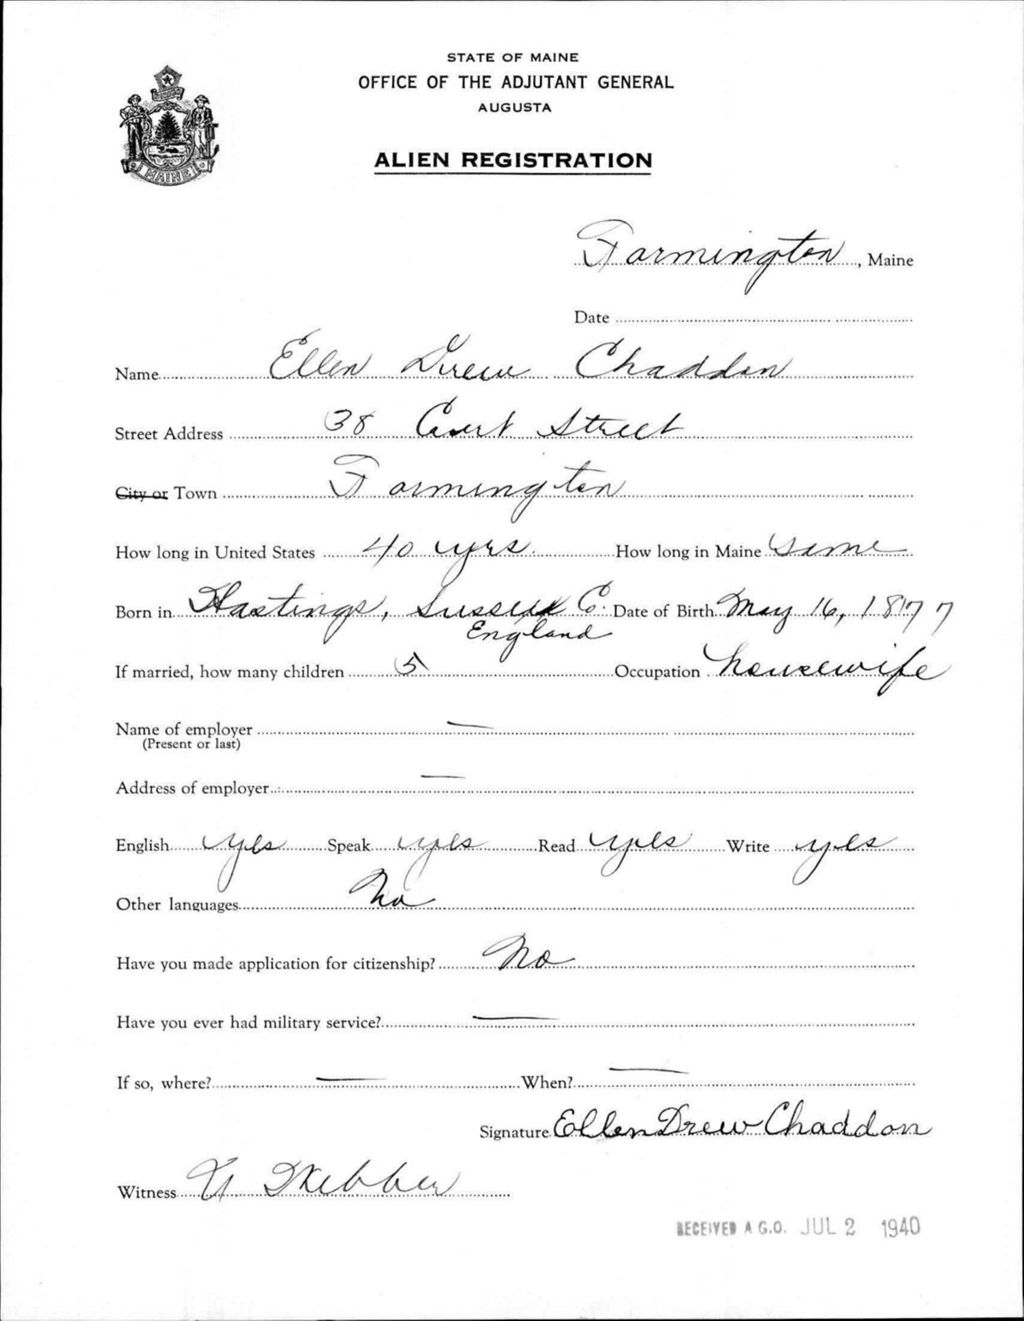 STATE OF MAINE
OFFICE OF THE ADJUTANT GENERAL
AUGUSTA
ALIEN REGISTRATION
MAINE
Farmington, Maine
Date
Name Ellen Drew Chaddon
Street Address 38 Court Street
City or Town Farmington
How long in United States 40 yrs. How long in Maine Same
Born in Hastings, Sussex Co. Date of Birth May 16, 1877
England
If married, how many children 5 Occupation housewife
Name of employer —
(Present or last)
Address of employer —
English yes Speak yes Read yes Write yes
Other languages No
Have you made application for citizenship? No
Have you ever had military service? —
If so, where? — When? —
Signature Ellen Drew Chaddon
Witness
RECEIVED A.G.O. JUL 2 1940